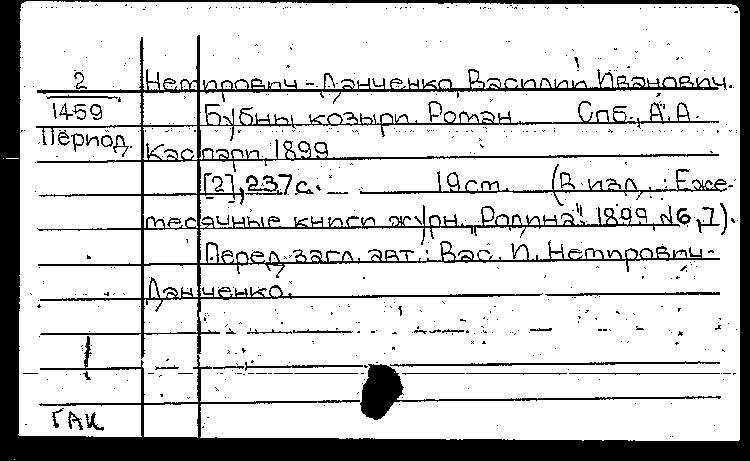 2
1459
Період
Немирович-Данченко, Василий Иванович.
Бубны козыри. Роман. Спб., А.А.
Каспари, 1899
[2], 237 с. 19 cm. (В изд.: Еже-
месячные книги журн. „Родина“. 1899, №6, 7).
Перед загл. авт.: Вас. И. Немирович-
Данченко.
ГАК